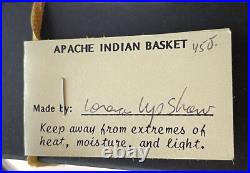 APACHE INDIAN BASKET 450.
Made by: Lorena Upshaw
Keep away from extremes of
heat, moisture, and light.